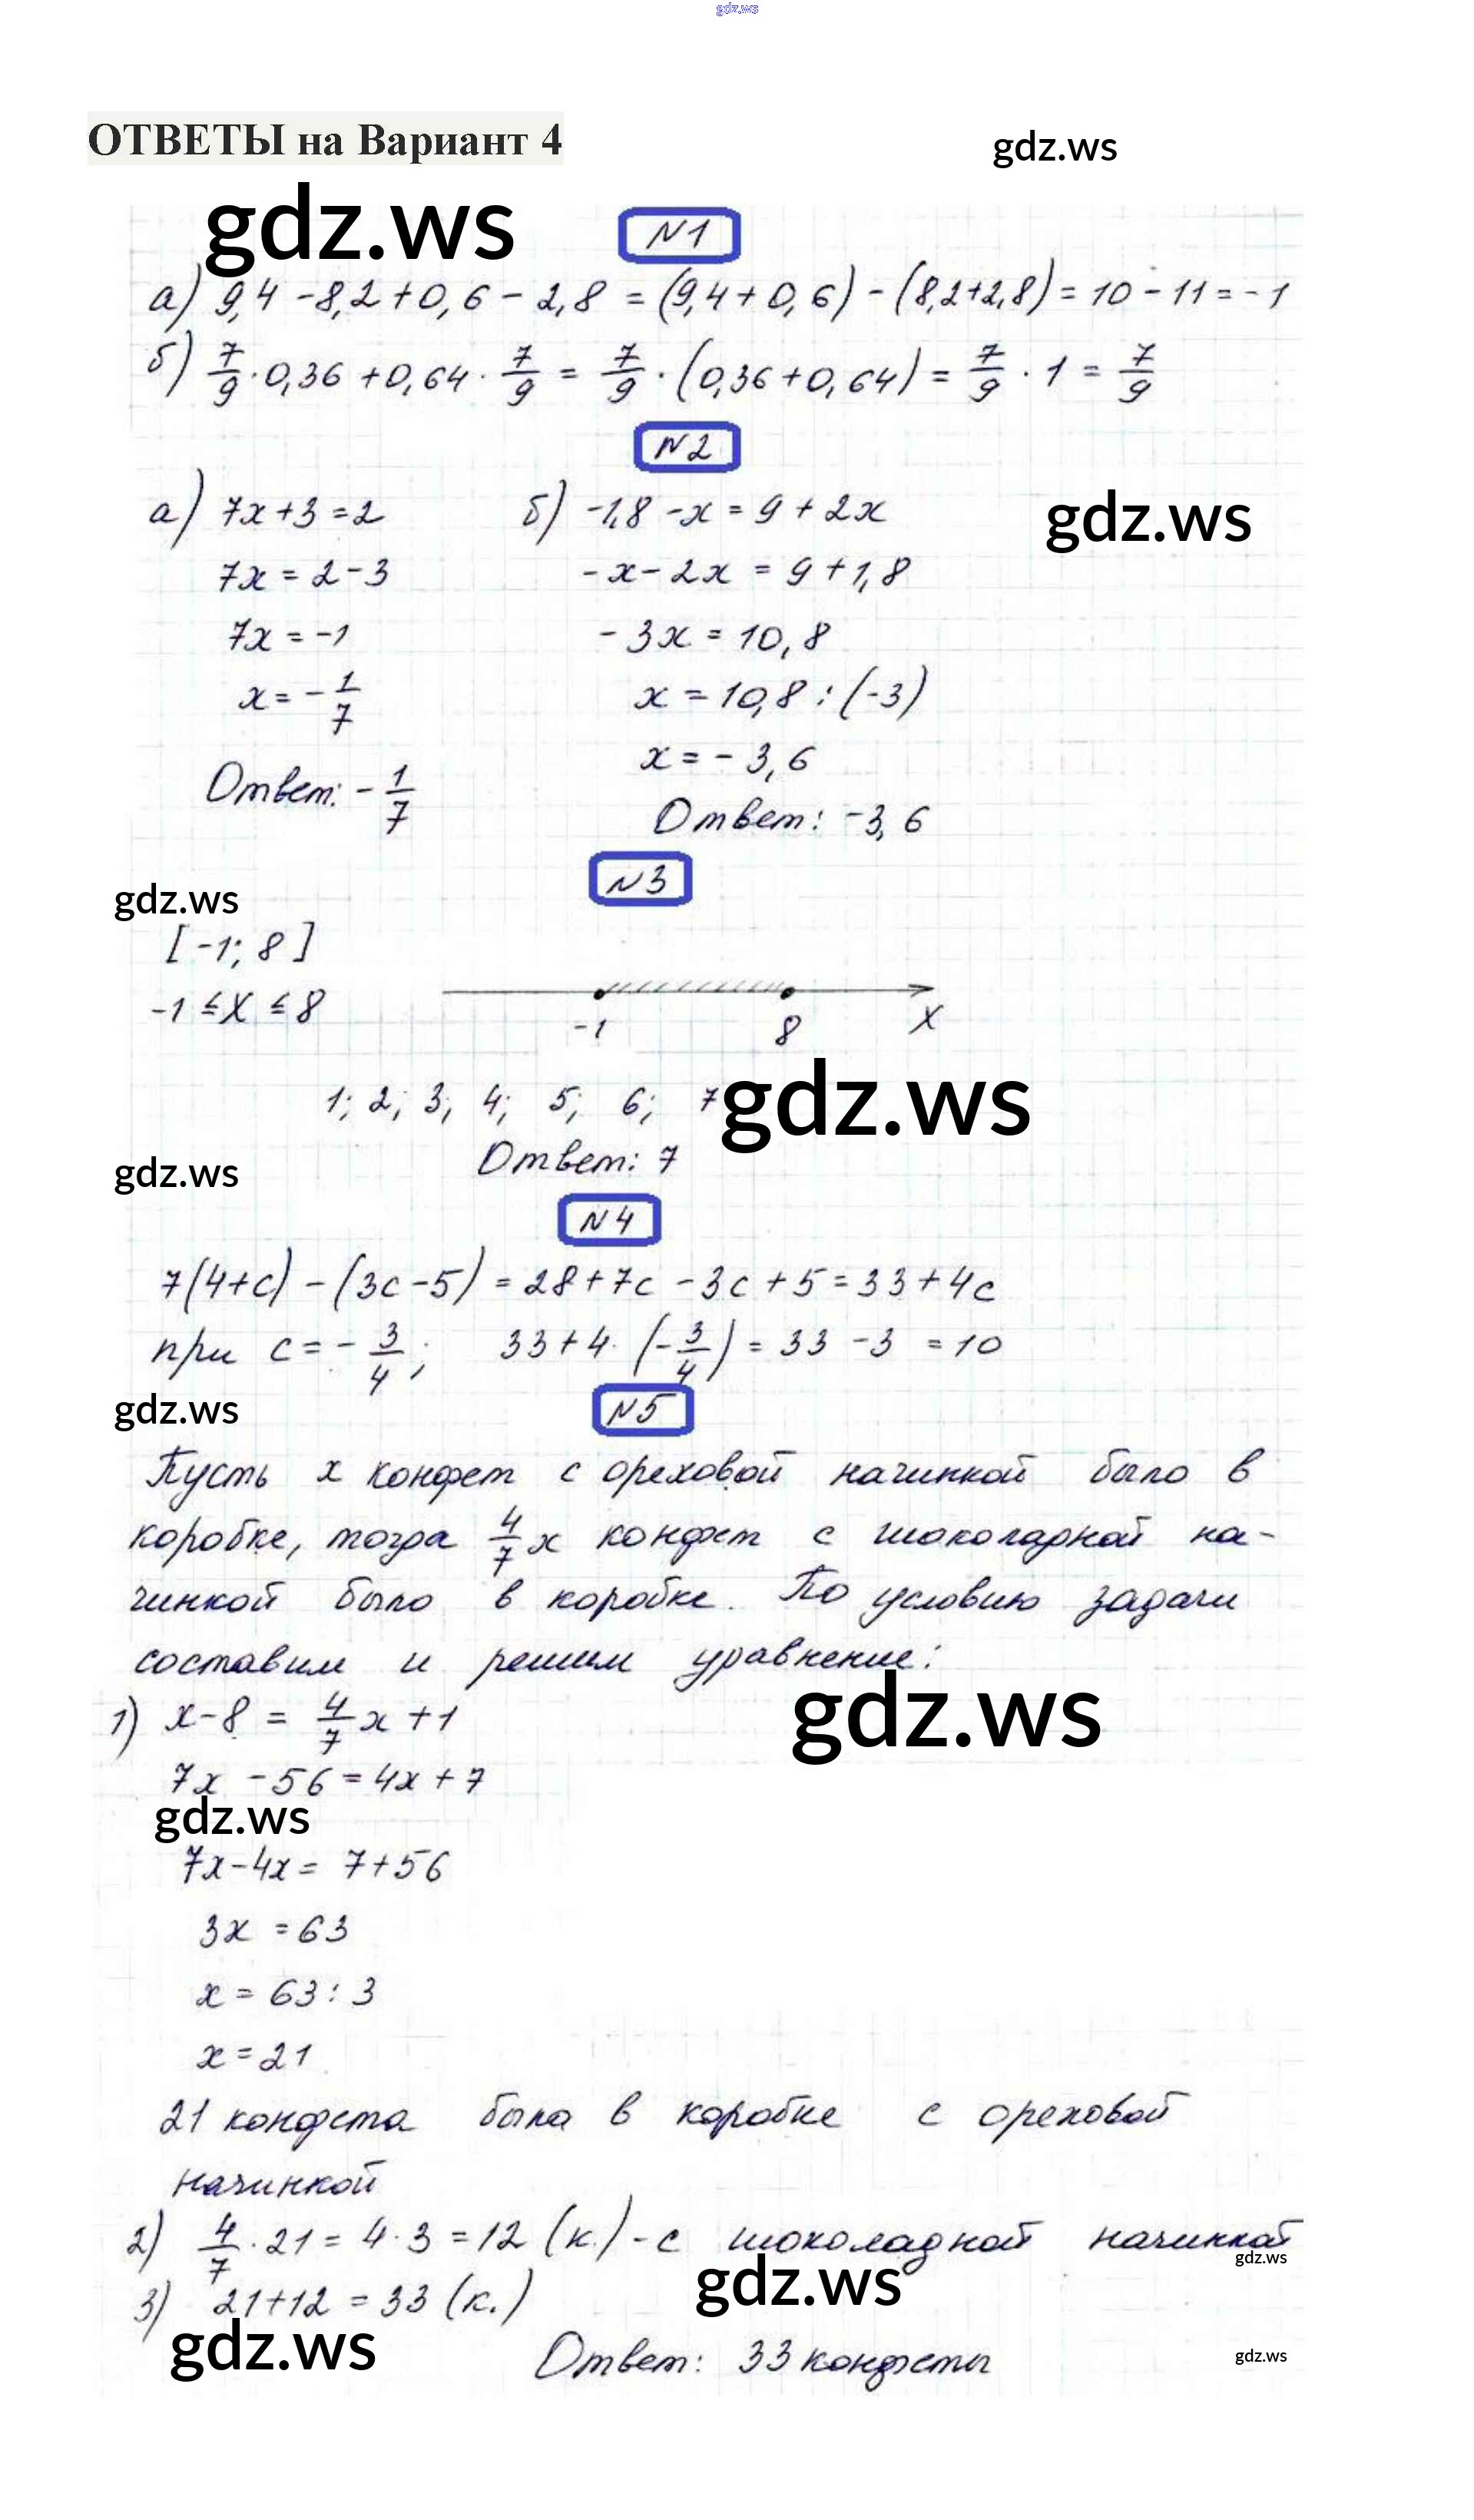 gdz.ws
ОТВЕТЫ на Вариант 4
gdz.ws
gdz.ws
N1
а) 9,4 - 8,2 + 0,6 - 2,8 = (9,4 + 0,6) - (8,2 + 2,8) = 10 - 11 = -1
б) 7/9 · 0,36 + 0,64 · 7/9 = 7/9 · (0,36 + 0,64) = 7/9 · 1 = 7/9
N2
а) 7x + 3 = 2
7x = 2 - 3
7x = -1
x = - 1/7
Ответ: - 1/7
б) -1,8 - x = 9 + 2x
-x - 2x = 9 + 1,8
-3x = 10,8
x = 10,8 : (-3)
x = -3,6
Ответ: -3,6
gdz.ws
N3
gdz.ws
[-1; 8]
-1 ≤ X ≤ 8
-1 8 X
1; 2; 3; 4; 5; 6; 7
gdz.ws
Ответ: 7
gdz.ws
N4
7(4+c) - (3c-5) = 28 + 7c - 3c + 5 = 33 + 4c
при c = - 3/4; 33 + 4 · (- 3/4) = 33 - 3 = 10
gdz.ws
N5
Пусть x конфет с ореховой начинкой было в
коробке, тогда 4/7 x конфет с шоколадной на-
чинкой было в коробке. По условию задачи
составим и решим уравнение:
1) x - 8 = 4/7 x + 1
gdz.ws
7x - 56 = 4x + 7
gdz.ws
7x - 4x = 7 + 56
3x = 63
x = 63 : 3
x = 21
21 конфета была в коробке с ореховой
начинкой
2) 4/7 · 21 = 4 · 3 = 12 (к.) - с шоколадной начинкой
gdz.ws
3) 21 + 12 = 33 (к.)
gdz.ws
gdz.ws
Ответ: 33 конфеты
gdz.ws